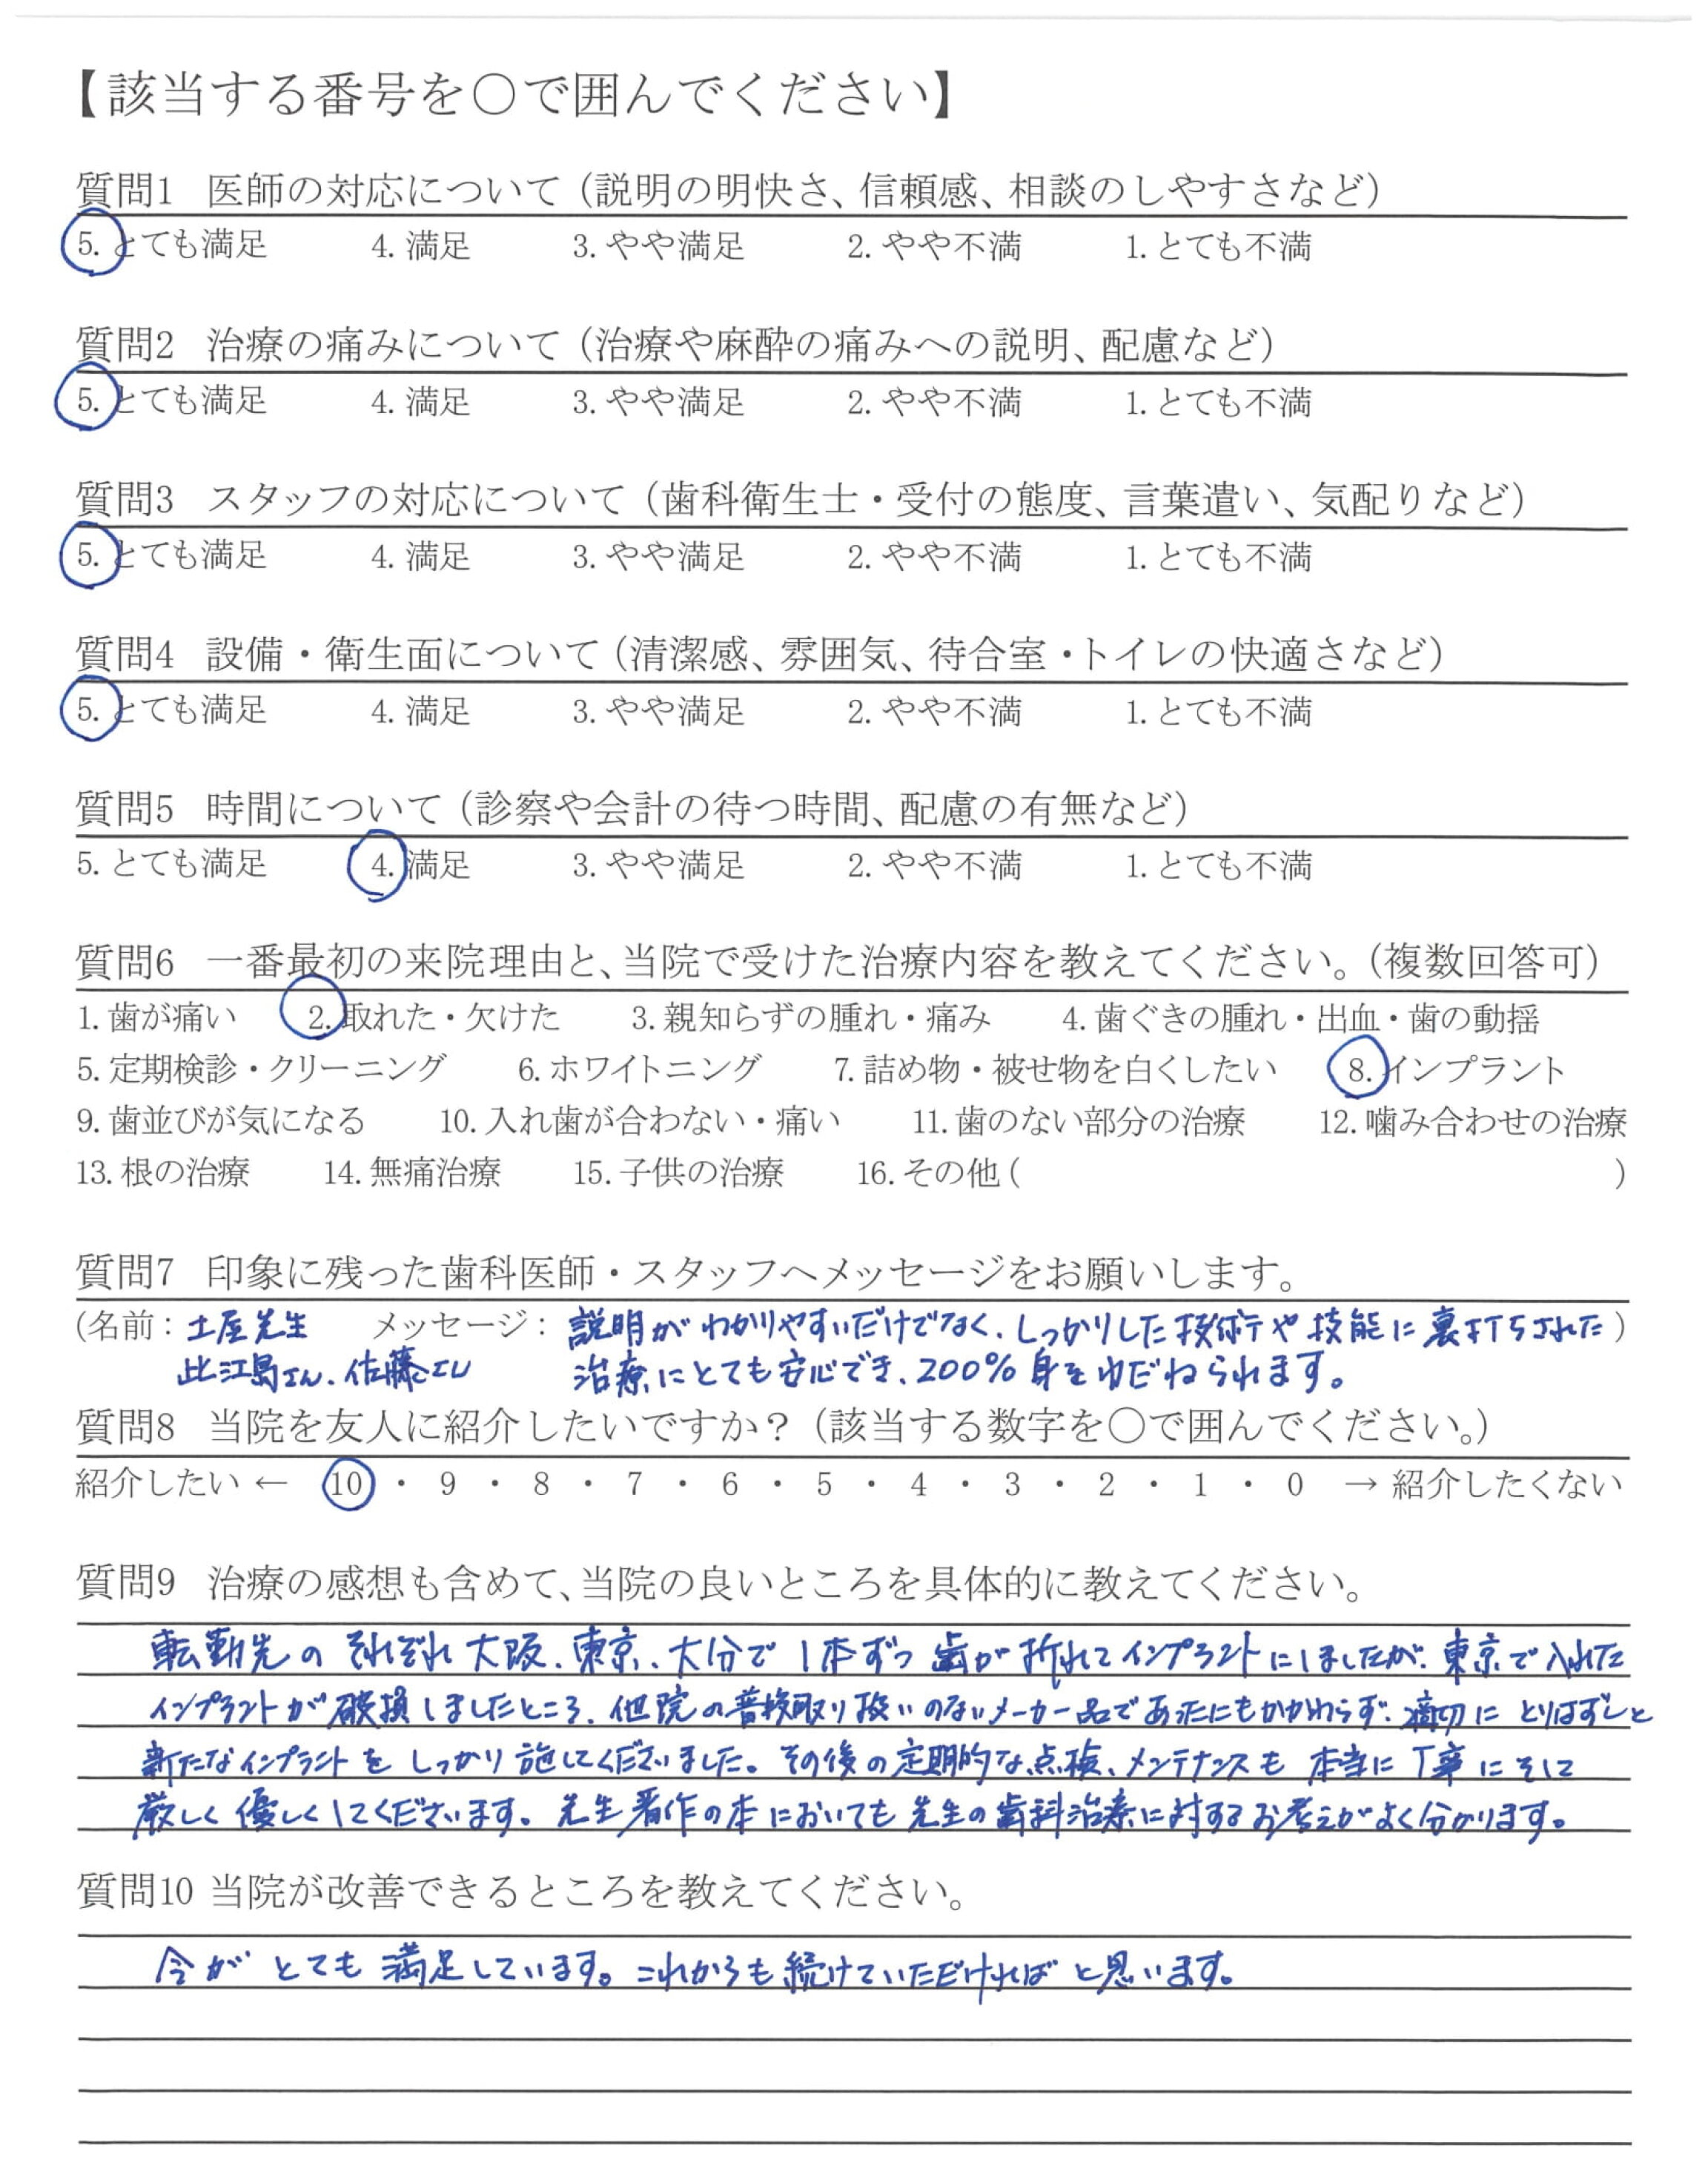 【該当する番号を○で囲んでください】
質問1 医師の対応について（説明の明快さ、信頼感、相談のしやすさなど）
5. とても満足 4. 満足 3. やや満足 2. やや不満 1. とても不満
質問2 治療の痛みについて（治療や麻酔の痛みへの説明、配慮など）
5. とても満足 4. 満足 3. やや満足 2. やや不満 1. とても不満
質問3 スタッフの対応について（歯科衛生士・受付の態度、言葉遣い、気配りなど）
5. とても満足 4. 満足 3. やや満足 2. やや不満 1. とても不満
質問4 設備・衛生面について（清潔感、雰囲気、待合室・トイレの快適さなど）
5. とても満足 4. 満足 3. やや満足 2. やや不満 1. とても不満
質問5 時間について（診察や会計の待つ時間、配慮の有無など）
5. とても満足 4. 満足 3. やや満足 2. やや不満 1. とても不満
質問6 一番最初の来院理由と、当院で受けた治療内容を教えてください。（複数回答可）
1. 歯が痛い 2. 取れた・欠けた 3. 親知らずの腫れ・痛み 4. 歯ぐきの腫れ・出血・歯の動揺
5. 定期検診・クリーニング 6. ホワイトニング 7. 詰め物・被せ物を白くしたい 8. インプラント
9. 歯並びが気になる 10. 入れ歯が合わない・痛い 11. 歯のない部分の治療 12. 噛み合わせの治療
13. 根の治療 14. 無痛治療 15. 子供の治療 16. その他（ ）
質問7 印象に残った歯科医師・スタッフへメッセージをお願いします。
（名前：土屋先生 メッセージ：説明がわかりやすいだけでなく、しっかりした技術や技能に裏打ちされた）
比江島さん、佐藤さん 治療にとても安心でき、200％身をゆだねられます。
質問8 当院を友人に紹介したいですか？（該当する数字を○で囲んでください。）
紹介したい ← 10 ・ 9 ・ 8 ・ 7 ・ 6 ・ 5 ・ 4 ・ 3 ・ 2 ・ 1 ・ 0 → 紹介したくない
質問9 治療の感想も含めて、当院の良いところを具体的に教えてください。
転勤先のそれぞれ大阪、東京、大分で1本ずつ歯が折れてインプラントにしましたが、東京で入れた
インプラントが破損しましたところ、他院の普段取り扱いのないメーカー品であったにもかかわらず、適切にとりはずしと
新たなインプラントをしっかり施してくださいました。その後の定期的な点検、メンテナンスも本当に丁寧にそして
厳しく優しくしてくださいます。先生著作の本においても先生の歯科治療に対するお考えがよく分かります。
質問10 当院が改善できるところを教えてください。
今がとても満足しています。これからも続けていただければと思います。